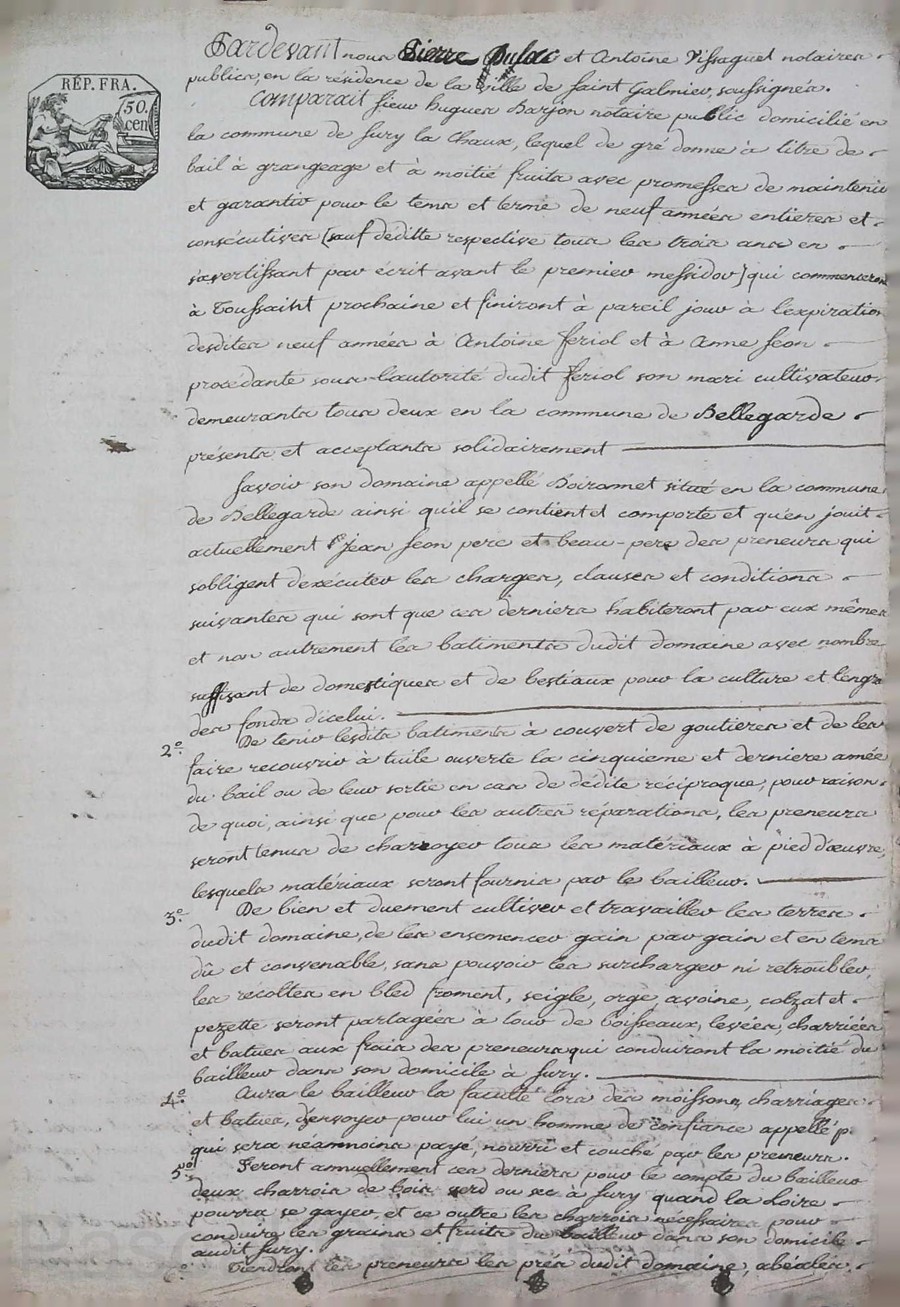 RÉP. FRA.
50.
cen
Pardevant nous Pierre Dulac et Antoine Vissaguet notaires
publics, en la résidence de la ville de Saint Galmier, soussignés.
Comparait sieur hugues Barjon notaire public domicilié en
la commune de Sury la Chaux, lequel de gré donne à titre de
bail à grangeage et à moitié fruits avec promesses de maintenir
et garantir pour le tems et terme de neuf années entieres et
consécutives [sauf deditte respective tous les trois ans en
s'avertissant par écrit avant le premier messidor] qui commenceront
à Toussaint prochaine et finiront à pareil jour à l'expiration
desdites neuf années à Antoine feriol et à Anne Jeon
procedante sous l'autorité dudit feriol son mari cultivateur
demeurants tous deux en la commune de Bellegarde
présents et acceptants solidairement
Savoir son domaine appellé Boironnet situé en la commune
de Bellegarde ainsi qu'il se contient et comporte et qu'en jouit
actuellement Jean Jeon pere et beau-pere des preneurs qui
sobligent dexécuter les charges, clauses et conditions
suivantes qui sont que ces derniers habiteront par eux mêmes
et non autrement les batiments dudit domaine avec nombre
suffisant de domestiques et de bestiaux pour la culture et lengra
des fonds d'icelui.
2º. De tenir lesdits batiments à couvert de goutieres et de les
faire recouvrir à tuile ouverte la cinquieme et derniere année
du bail ou de leur sortie en cas de dédite réciproque, pour raison
de quoi, ainsi que pour les autres réparations, les preneurs
seront tenus de charroyer tous les matériaux à pied d'œuvre,
lesquels matériaux seront fournis par le bailleur.
3º. De bien et duement cultiver et travailler les terres
dudit domaine, de les ensemencer gain par gain et en tems
dû et convenable, sans pouvoir les surcharger ni retroubler,
les récoltes en bled froment, seigle, orge, avoine, colzat et
pezette seront partagées à tour de boisseaux, levées, charriées
et batues aux frais des preneurs qui conduiront la moitié du
bailleur dans son domicile à Sury.
4º. Aura le bailleur la faculté lors des moissons, charriages
et batues, d'envoyer pour lui un homme de confiance appellé
qui sera néamnoins payé, nourri et couché par les preneurs.
5º. Feront annuellement ces derniers pour le compte du bailleur
deux charrois de bois verd ou sec à Sury quand la Loire
pourra se gayer, et ce outre les charrois nécessaires pour
conduire les grains et fruits du bailleur dans son domicile
audit Sury.
Tiendront les preneurs les prés dudit domaine, abéalés,